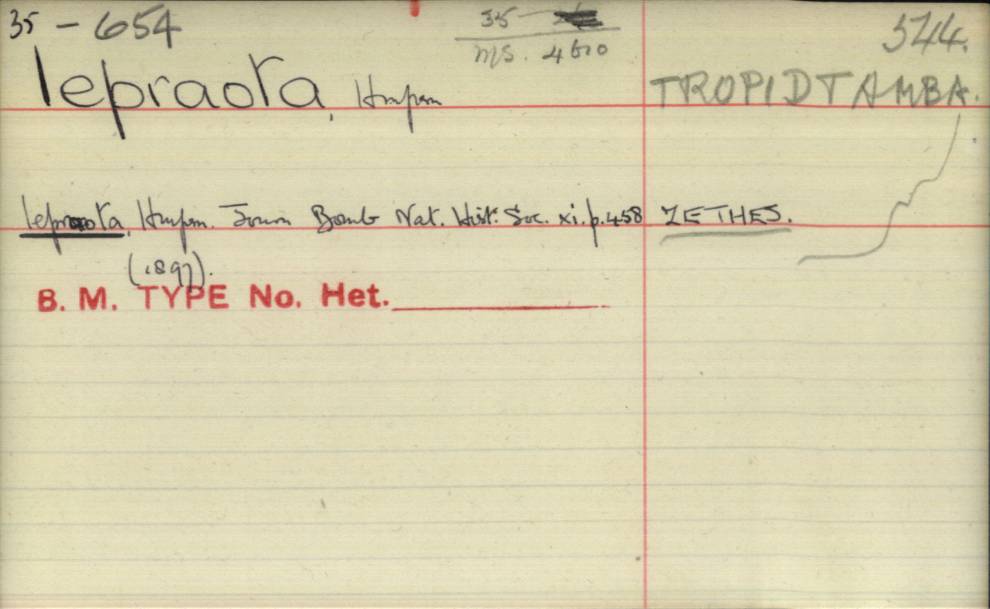 35 - 654
35
MS. 4610
544.
lepraota, Hmpsn
TROPIDTAMBA.
lepraota, Hmpsn. Journ Bomb Nat. Hist. Soc. xi. p. 458 ZETHES.
(1897).
B. M. TYPE No. Het.